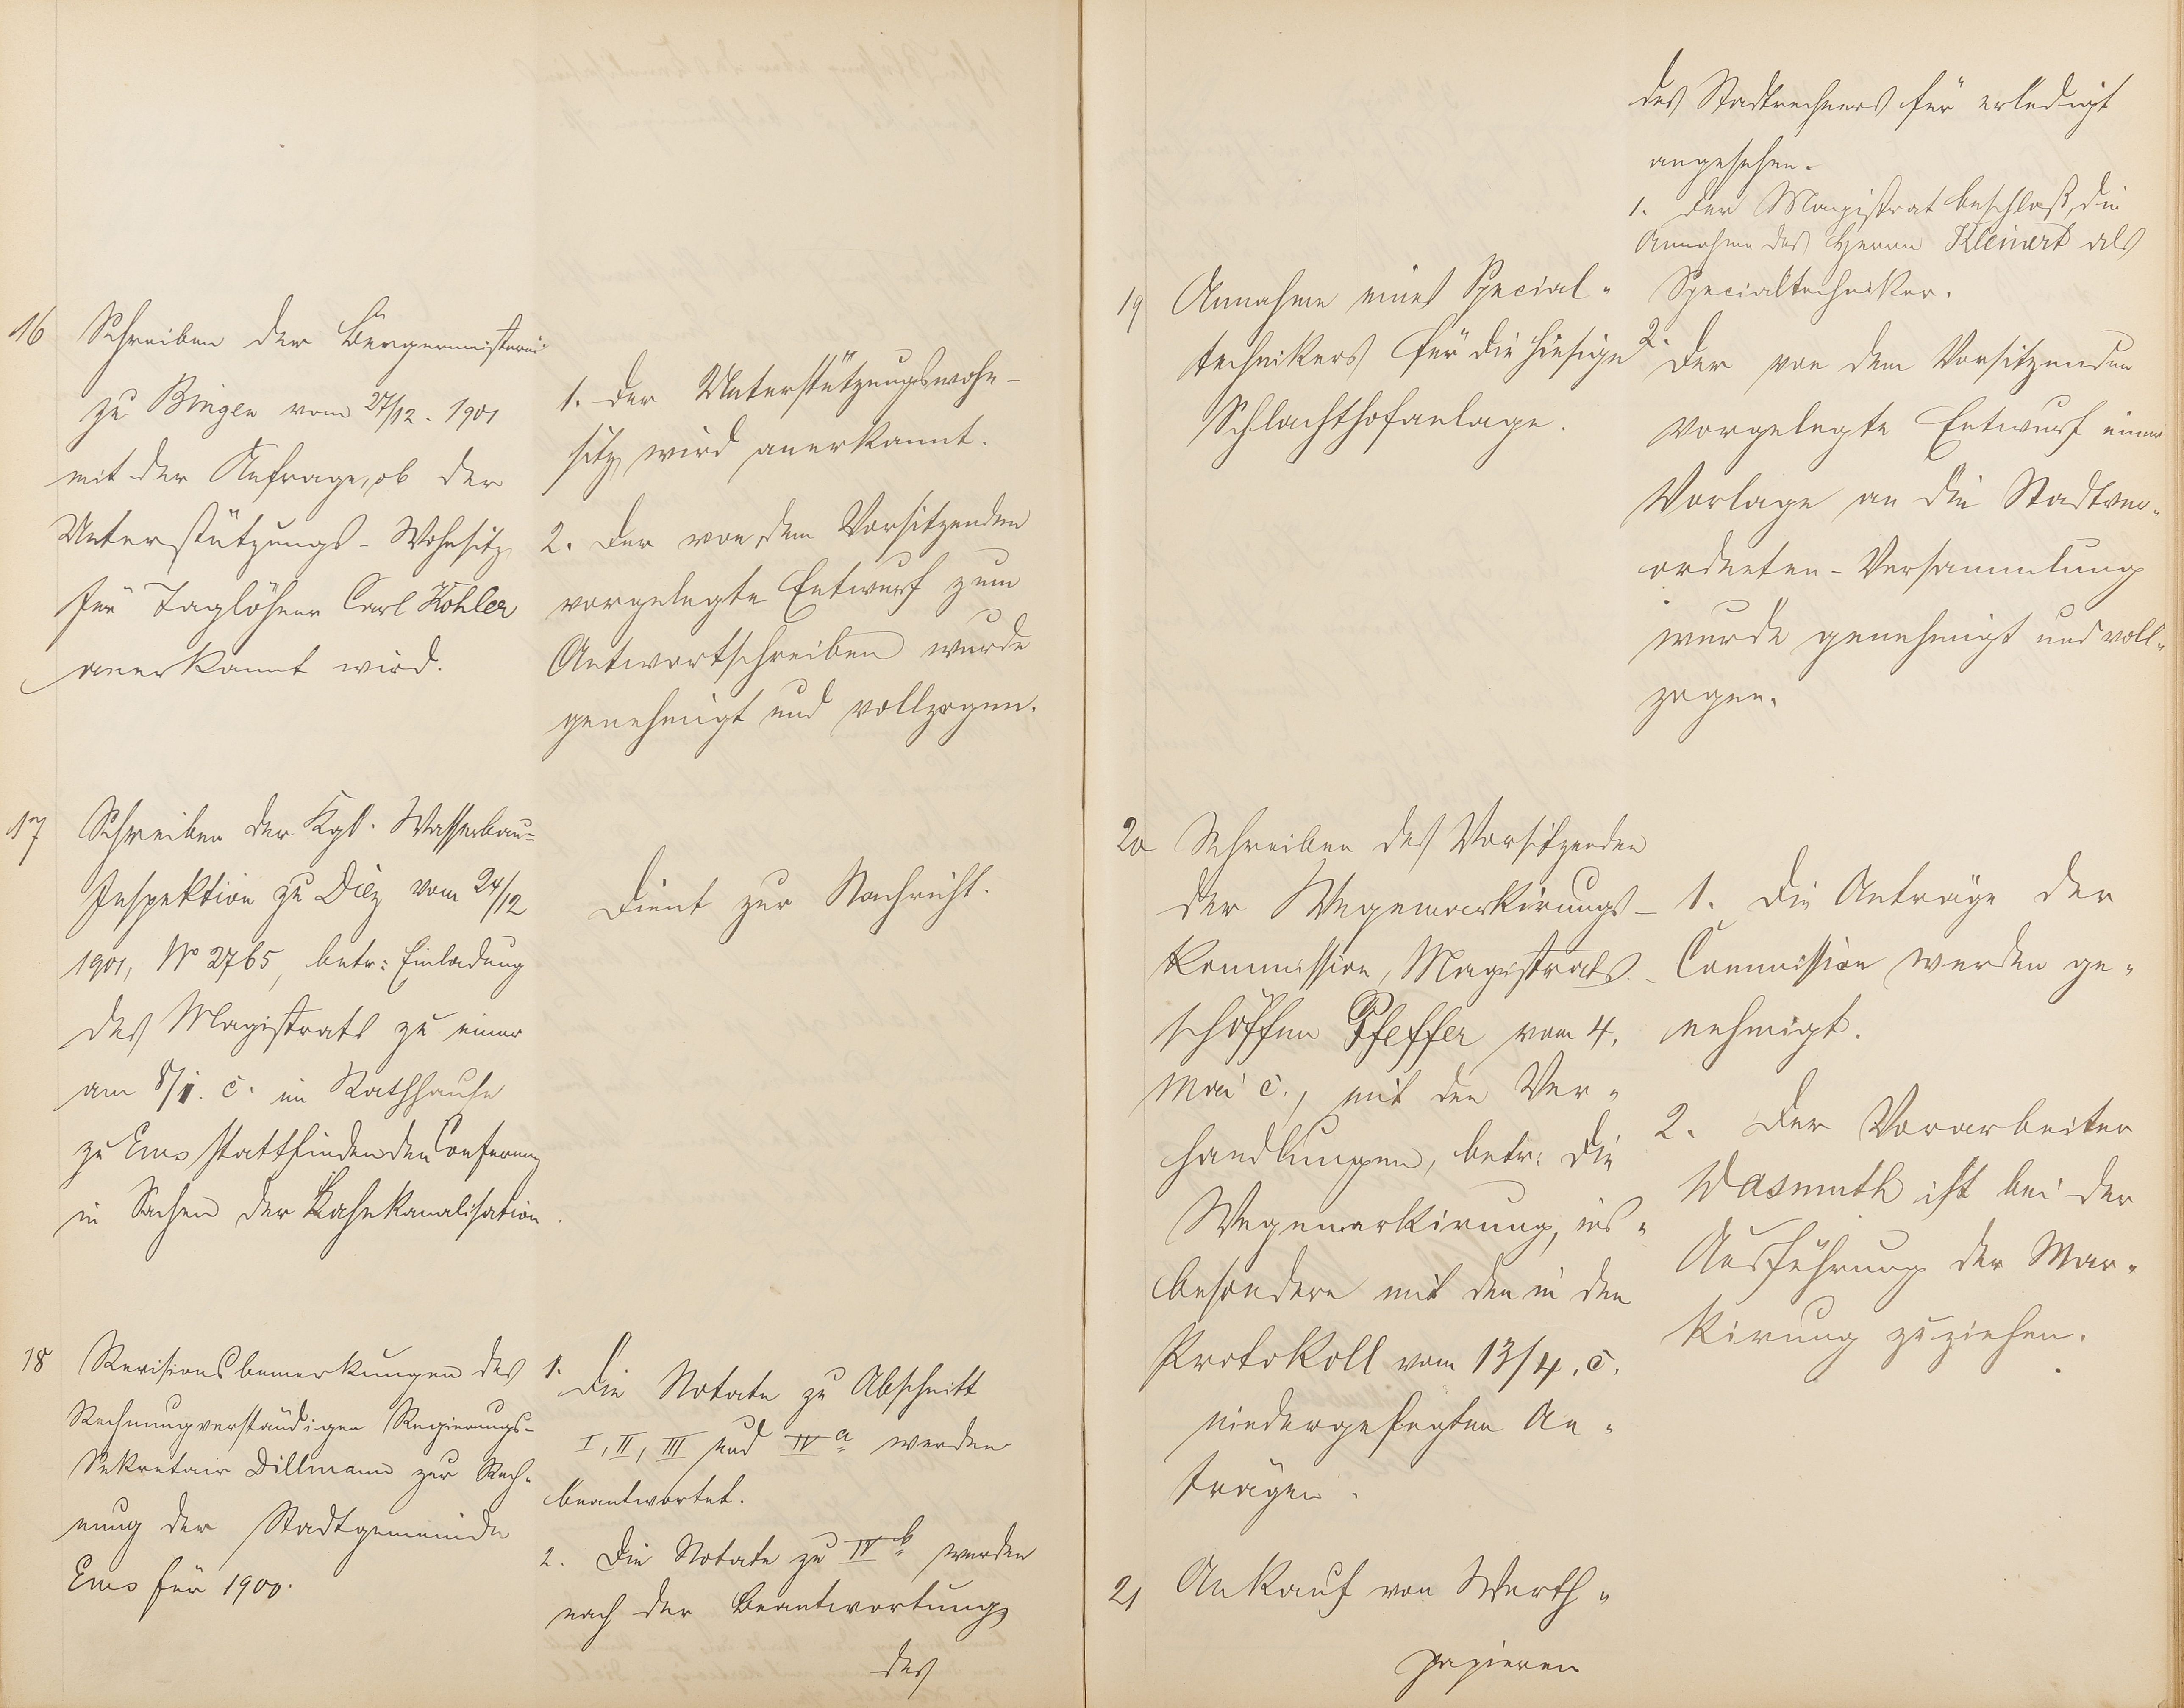 16 Schreiben der Bürgermeisterei
zu Bingen vom 27/12. 1901
mit der Anfrage, ob der
Unterstützungs-Wohnsitz
für Taglöhner Carl Kohler
anerkannt wird.
1. Der Unterstützungswohn-
sitz wird anerkannt.
2. Der von dem Vorsitzenden
vorgelegte Entwurf zum
Antwortschreiben wurde
genehmigt und vollzogen.
17 Schreiben der Kgl. Wasserbau-
Inspektion zu Diez vom 24/12
1901, No 2765, betr: Einladung
des Magistrats zu einer
am 8/1. c. im Rathhause
zu Ems stattfindenden Conferenz
in Sachen der Lahnkanalisation.
Dient zur Nachricht.
18 Revisionsbemerkungen des
Rechnungverständigen Regierungs-
Sekretair Dillmann zur Rech-
nung der Stadtgemeinde
Ems für 1900.
1. Die Notate zu Abschnitt
I, II, III und IV a werden
beantwortet.
2. Die Notate zu IV b werden
nach der Beantwortung
des
des Stadtrechners für erledigt
angesehen.
19 Annahme eines Special-
technikers für die hiesige
Schlachthofanlage.
1. Der Magistrat beschloß, die
Annahme des Herrn Kleinert als
Specialtechniker.
2. Der von dem Vorsitzenden
vorgelegte Entwurf einer
Vorlage an die Stadtver-
ordneten-Versammlung
wurde genehmigt und voll-
zogen.
20 Schreiben des Vorsitzenden
der Wegemarkirungs-
kommission, Magistrats-
schöffen Pfeffer vom 4.
Mai c., mit den Ver-
handlungen, betr: die
Wegemarkirung, ins-
besondere mit den in dem
Protokoll vom 13/4. c.
niedergelegten An-
trägen.
1. Die Anträge der
Commission werden ge-
nehmigt.
2. Der Vorarbeiter
Wasmuth ist bei der
Ausführung der Mar-
kirung zuziehen.
21 Ankauf von Werth-
papieren